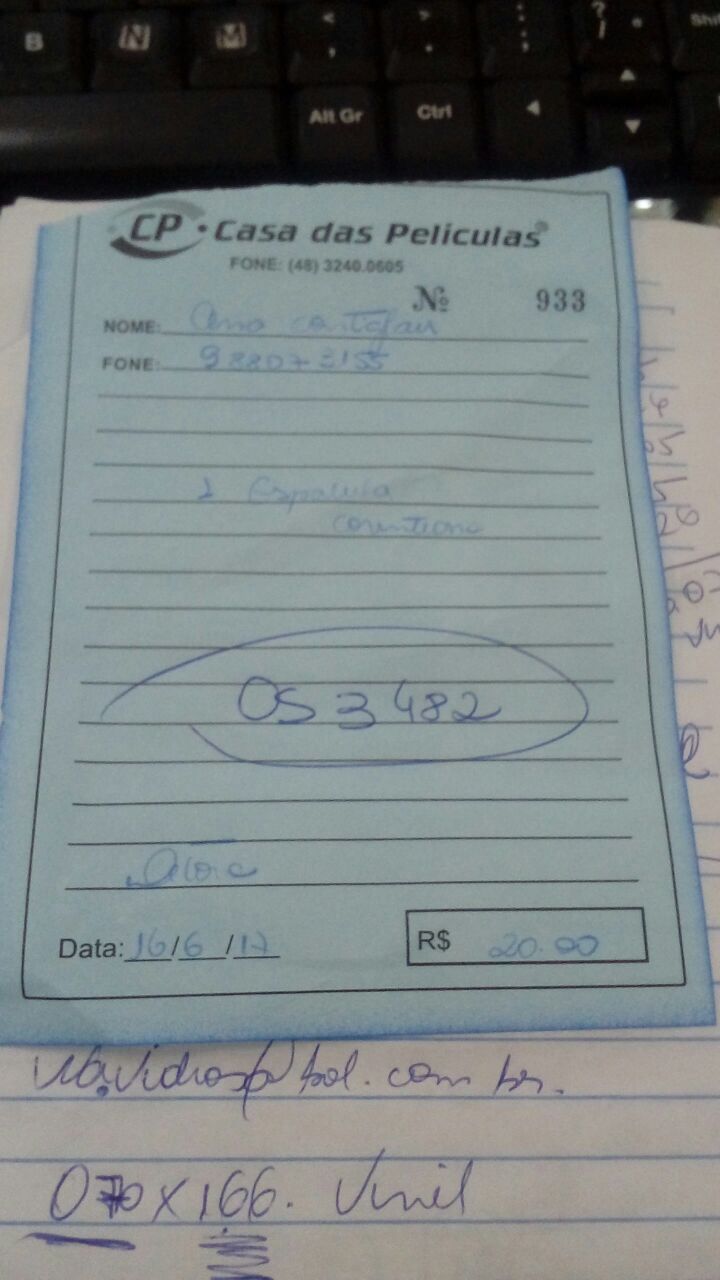 B N M < , > . : ; ? / ° Shi
Alt Gr Ctrl
CP • Casa das Peliculas
FONE: (48) 3240.0605
Nº 933
NOME: Ana
FONE: 988073155
1 Espatula
OS 3482
Data: 16/6/17 R$ 20.00
bol.com.br.
070 x 166. Vinil